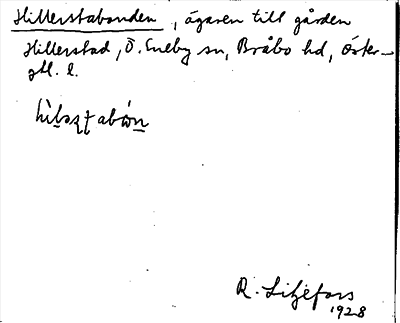 Hillerstabonden, ägaren till gården
Hillerstad, Ö. Eneby sn, Bråbo hd, Öster-
gtl. l.
R. Liljefors
1928